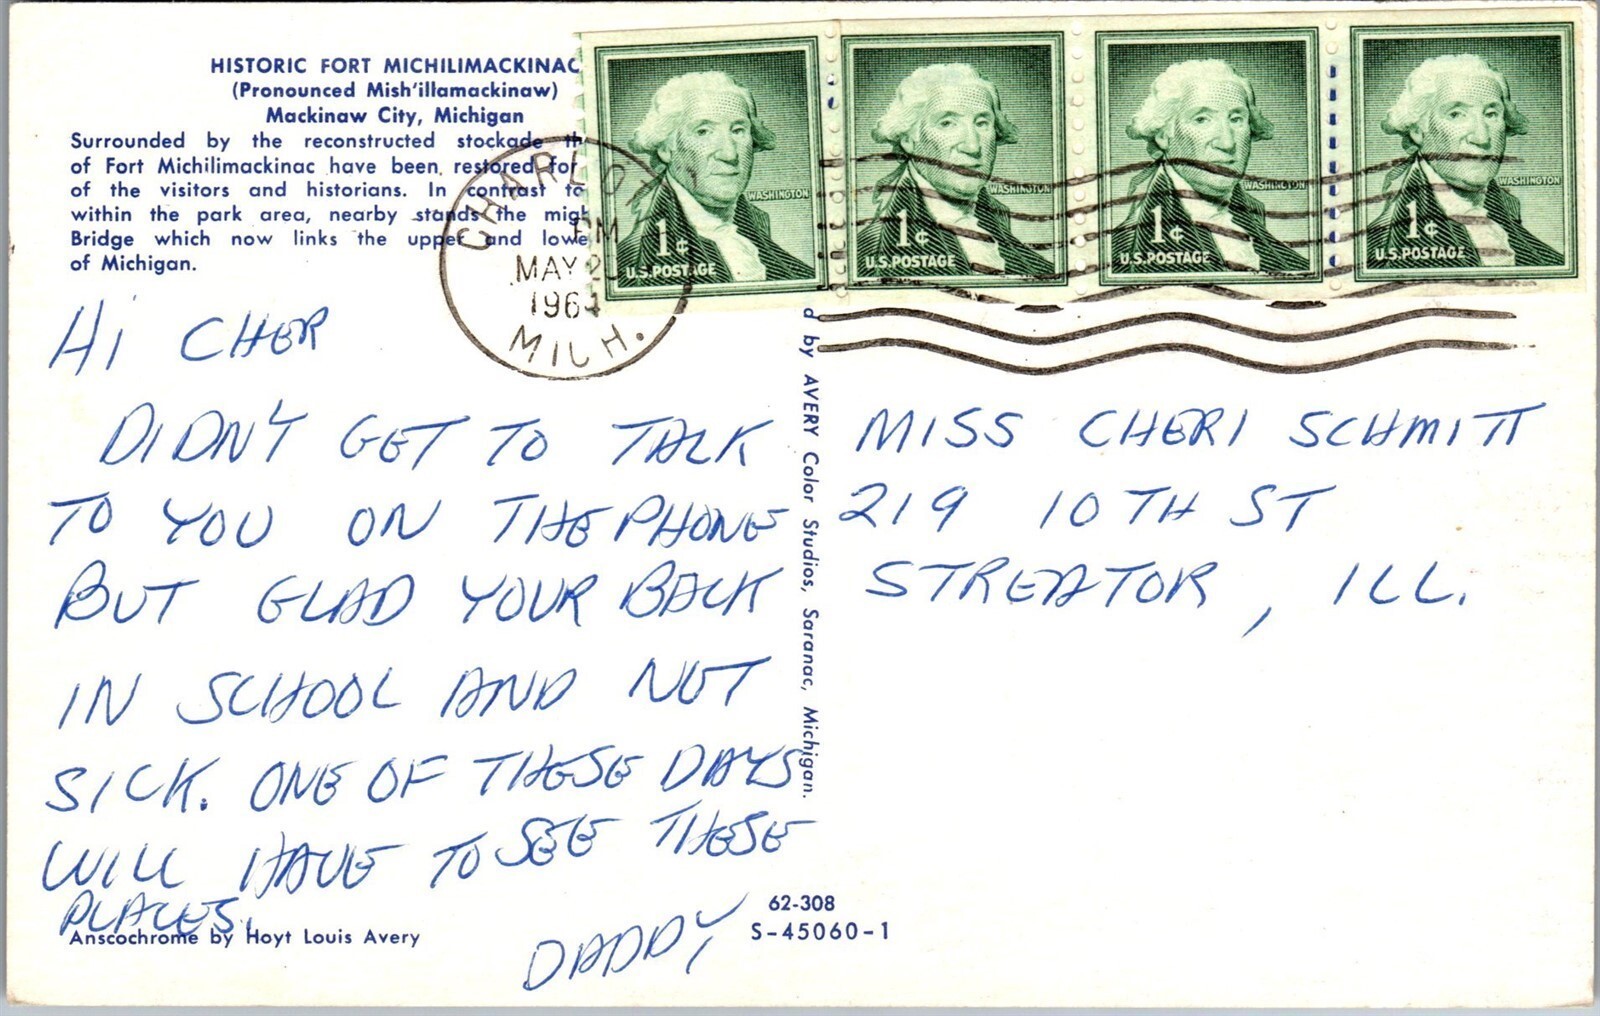 HISTORIC FORT MICHILIMACKINAC
(Pronounced Mish'illamackinaw)
Mackinaw City, Michigan
Surrounded by the reconstructed stockade th
of Fort Michilimackinac have been restored for
of the visitors and historians. In contrast to
within the park area, nearby stands the mig
Bridge which now links the upper and lowe
of Michigan.
PM
MAY 2
1964
MICH.
WASHINGTON
1¢
U.S. POSTAGE
WASHINGTON
1¢
U.S. POSTAGE
WASHINGTON
1¢
U.S. POSTAGE
WASHINGTON
1¢
U.S. POSTAGE
HI CHER
DIDN'T GET TO TALK
TO YOU ON THE PHONE
BUT GLAD YOUR BACK
IN SCHOOL AND NOT
SICK. ONE OF THESE DAYS
WILL HAVE TO SEE THESE
PLACES.
DADDY
Anscochrome by Hoyt Louis Avery
d by AVERY Color Studios, Saranac, Michigan.
MISS CHERI SCHMITT
219 10TH ST
STREATOR, ILL.
62-308
S-45060-1